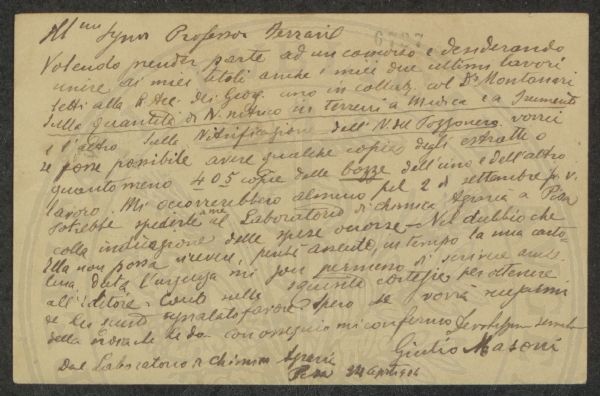 Ill.mo Signor Professor Ferrari
6797
Volendo prender parte ad un concorso e desiderando
unire ai miei titoli anche i miei due ultimi lavori
letti alla R. Acc. dei Georg. uno in collab. col Dr Montanari
sulla quantità di N. nitrico in terreni a Medica e a Frumento
e l'altro sulla Nitrificazione dell'N. del Pozzonero, vorrei
se fosse possibile avere qualche copia degli estratti o
quanto meno 4 o 5 copie delle bozze dell'uno e dell'altro
lavoro. Mi occorrerebbero almeno pel 2 settembre p. v.
Potrebbe spedirle al Laboratorio di chimica Agraria a Pisa
colla indicazione delle spese occorse - Nel dubbio che
Ella non possa ricevere, perché assente, in tempo la mia carto-
lina data l'urgenza mi son permesso di scrivere anche
all'editore. Conto sulla squisita cortesia per ottenere
segnalato favore. Spero se vorrà scusarmi
della e con ossequio mi confermo
Giulio Masoni
Dal Laboratorio di Chimica Agraria
Pisa